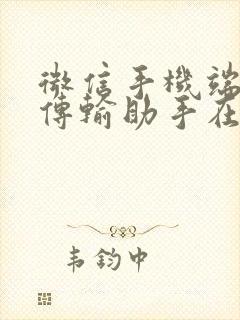 微信手機端
傳輸助手在
韦鈞中